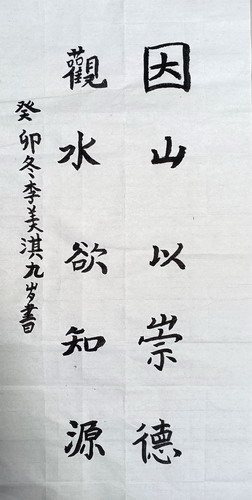 因山以崇德
觀水欲知源
癸卯冬李美淇九岁書